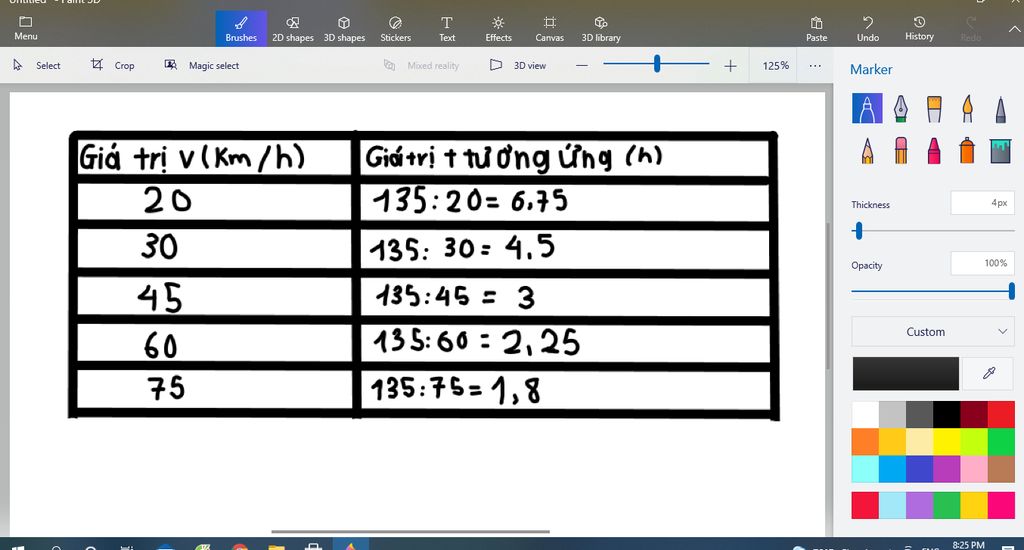 Untitled - Paint 3D
Menu
Brushes 2D shapes 3D shapes Stickers Text Effects Canvas 3D library Paste Undo History Redo
Select Crop Magic select Mixed reality 3D view 125%
Marker
Thickness 4px
Opacity 100%
Custom
Giá trị v (Km/h) Giá trị t tương ứng (h)
20 135:20= 6.75
30 135: 30= 4.5
45 135:45 = 3
60 135:60 = 2,25
75 135:75=1,8
8:25 PM